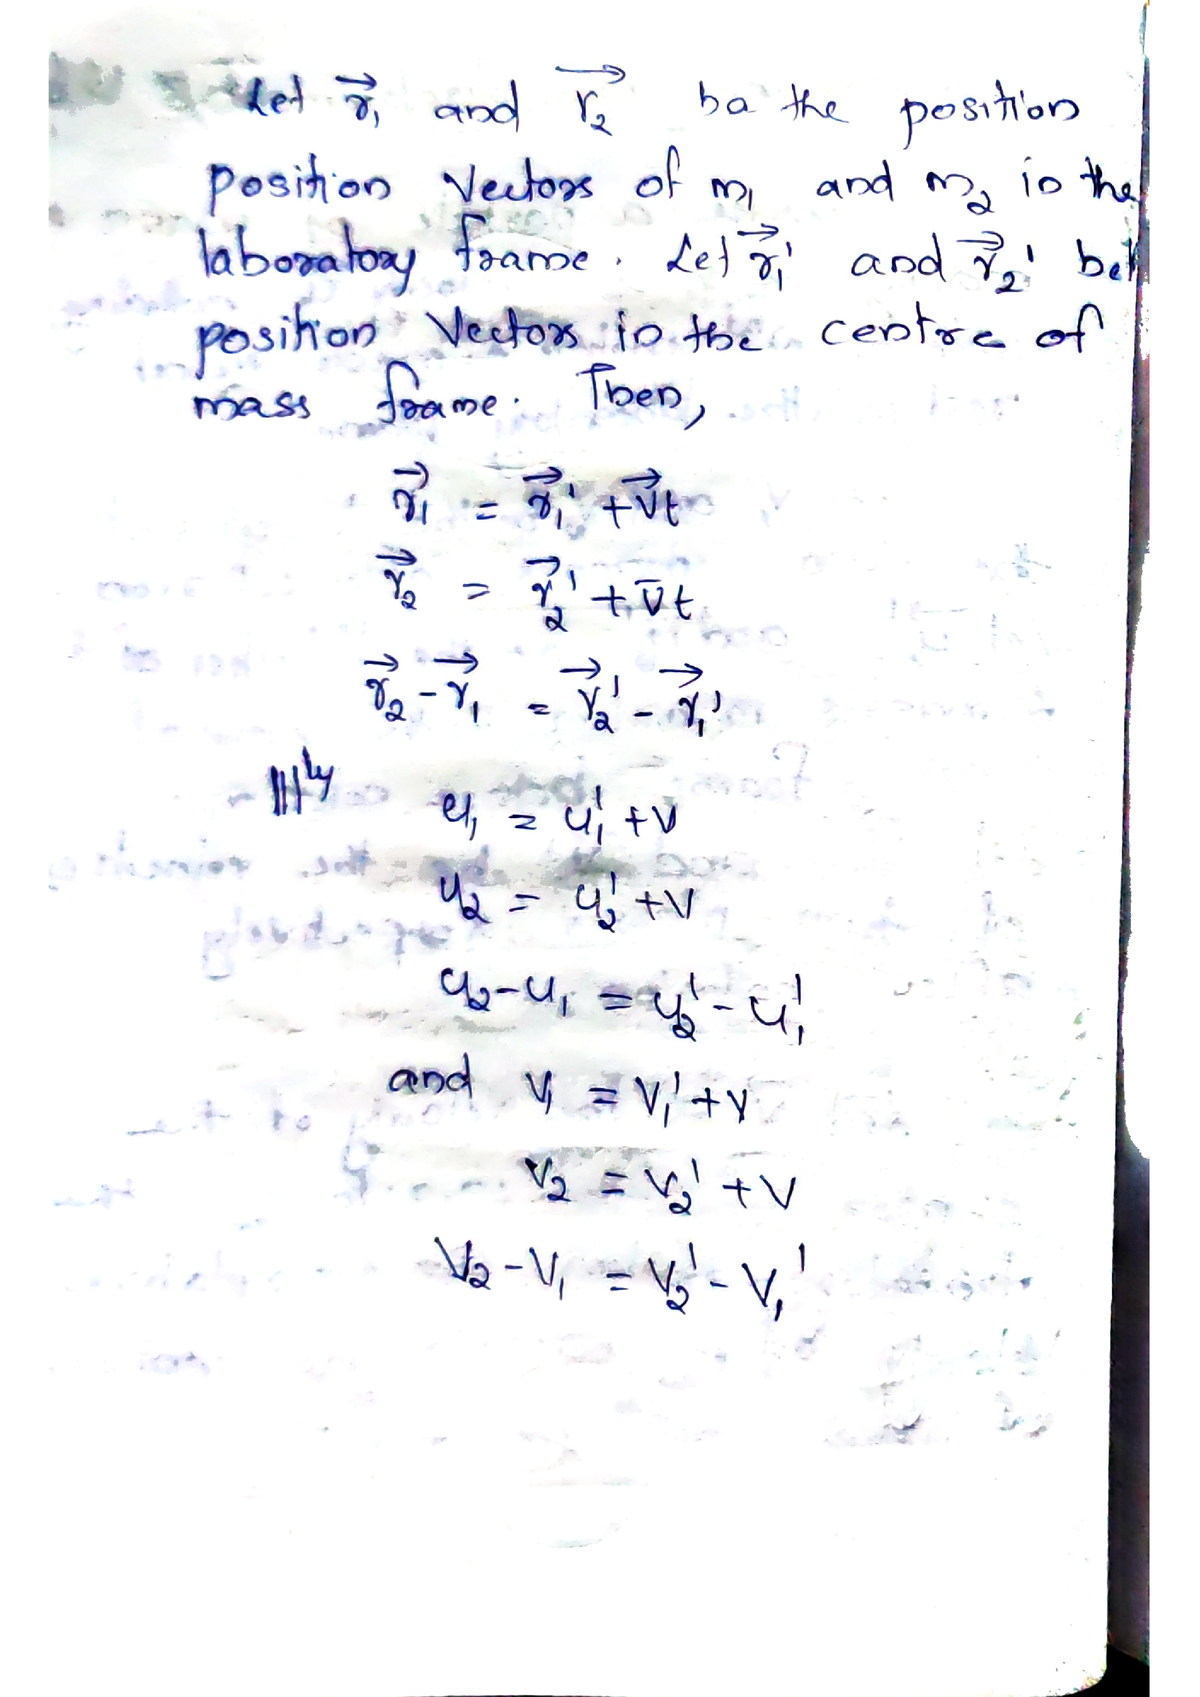 Let r⃗₁ and r⃗₂ ba the position
position Vectors of m₁ and m₂ in the
laboratory frame. Let r⃗₁' and r⃗₂' be
position Vectors in the centre of
mass frame. Then,
r⃗₁ = r⃗₁' + v⃗t
r⃗₂ = r⃗₂' + v̄t
r⃗₂ - r⃗₁ = r⃗₂' - r⃗₁'
|||ly
u₁ = u₁' + v
u₂ = u₂' + v
u₂ - u₁ = u₂' - u₁'
and v₁ = v₁' + v
v₂ = v₂' + v
v₂ - v₁ = v₂' - v₁'